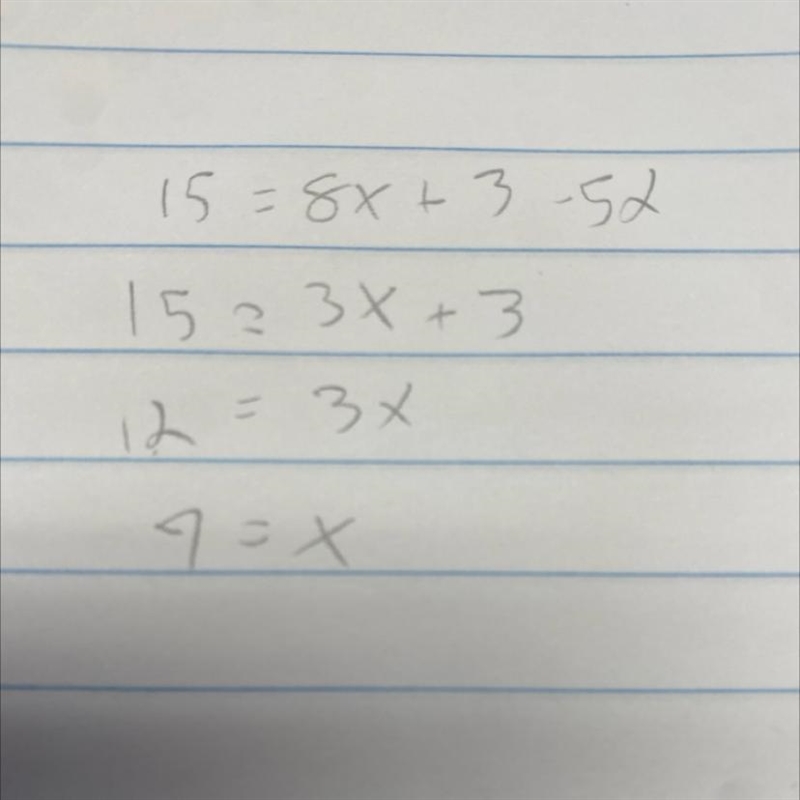 15 = 8x + 3 - 5x
15 = 3x + 3
12 = 3x
9 = x